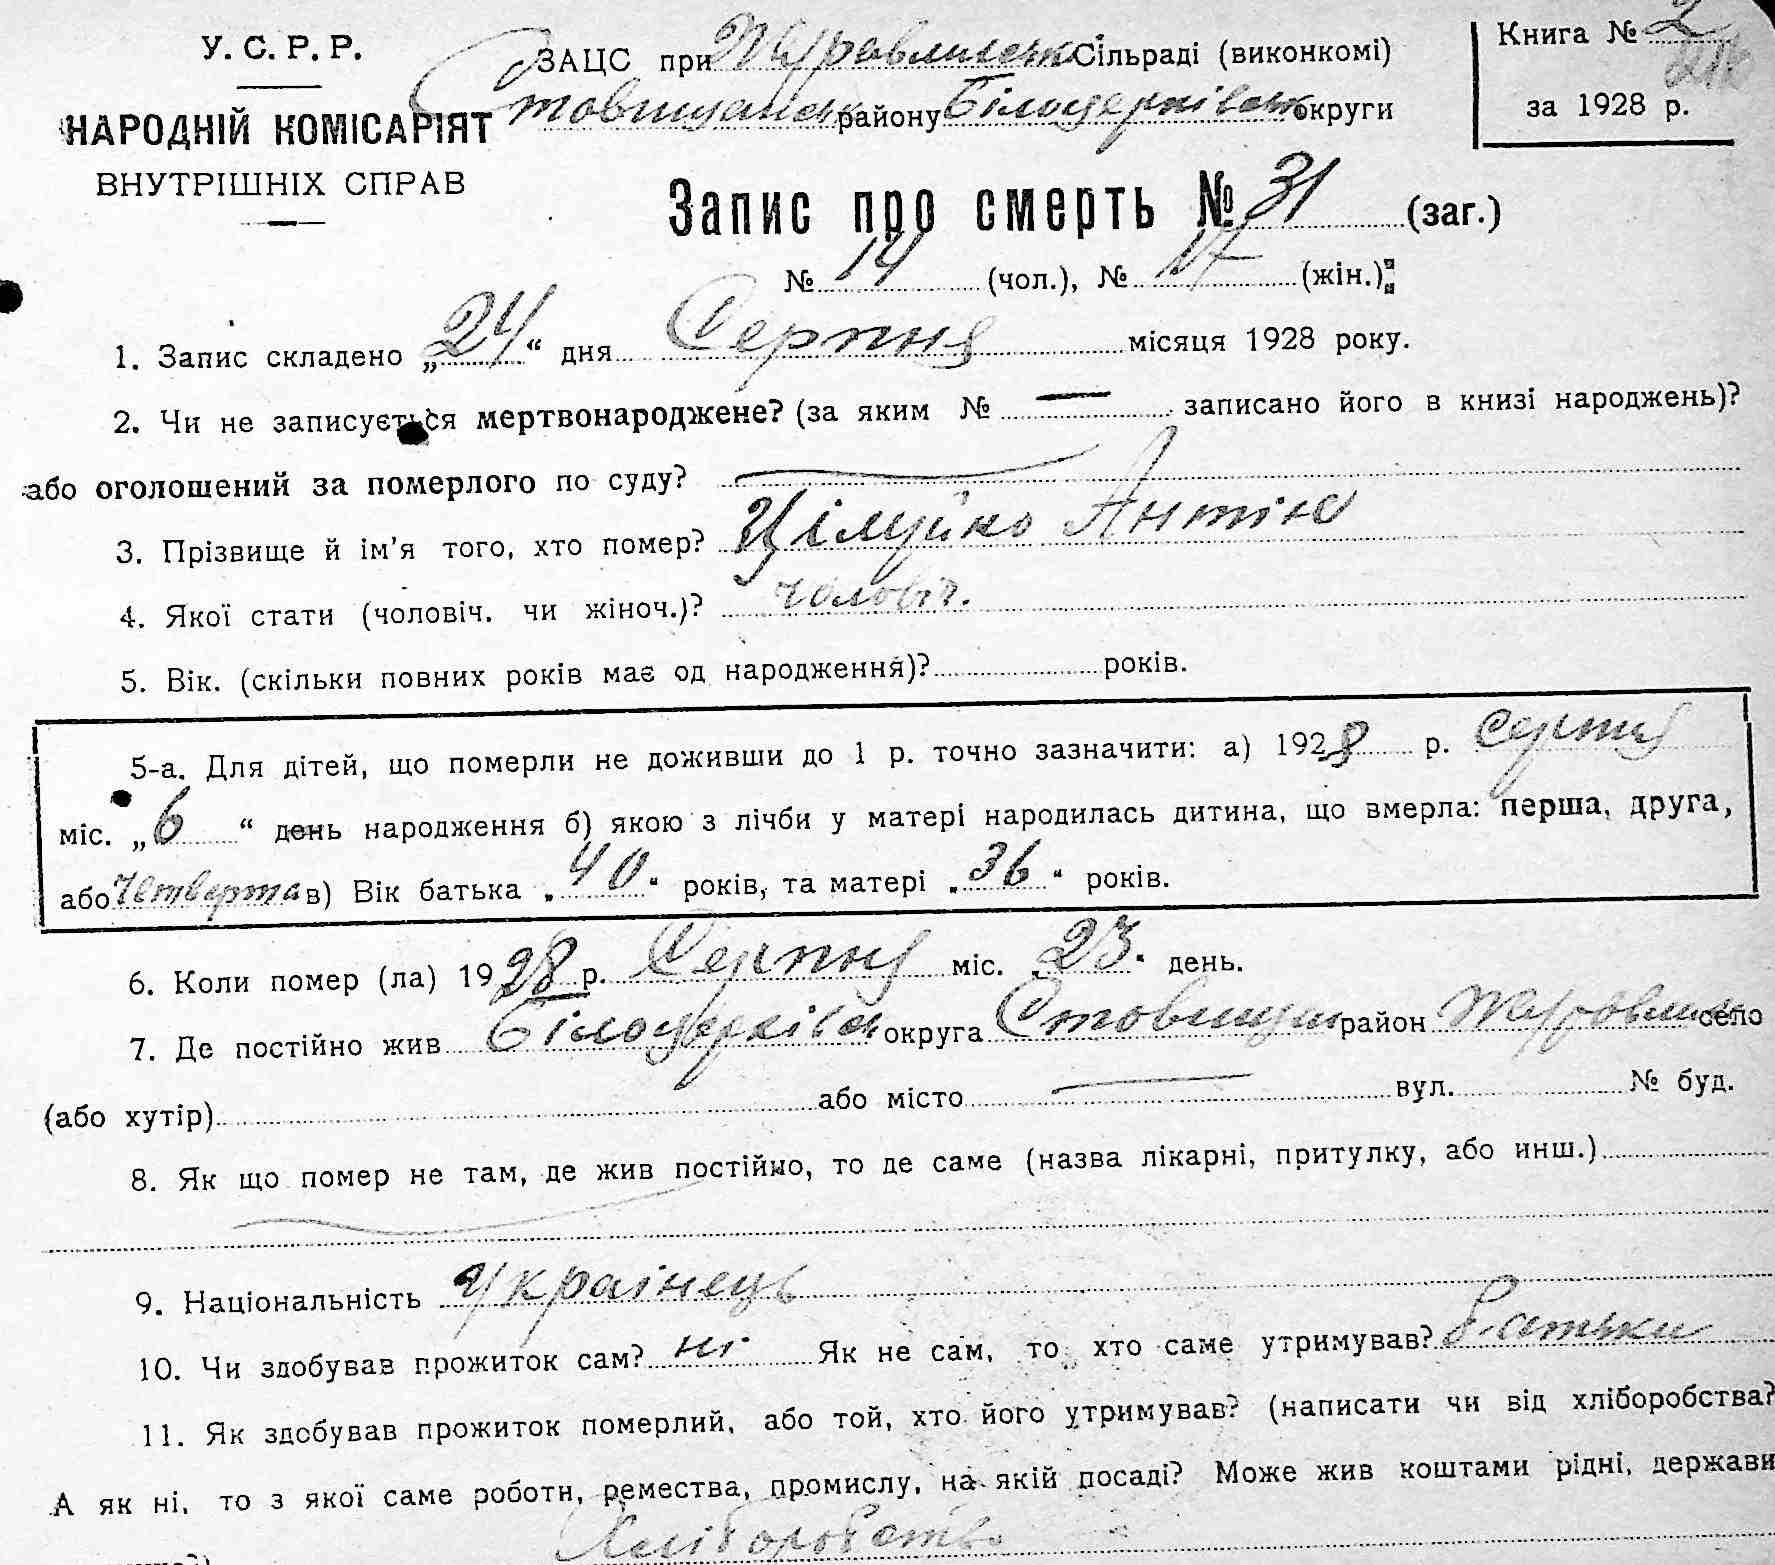 У. С. Р. Р.
НАРОДНІЙ КОМІСАРІЯТ
ВНУТРІШНІХ СПРАВ
ЗАЦС при Журавлиськ Сільраді (виконкомі)
Ставищанськ району Білоцерківськ округи
Книга № 2
за 1928 р.
Запис про смерть № 31 (заг.)
№ 14 (чол.), № 17 (жін.)
1. Запис складено „24“ дня Серпня місяця 1928 року.
2. Чи не записується мертвонароджене? (за яким № — записано його в книзі народжень)?
або оголошений за померлого по суду? —
3. Прізвище й ім'я того, хто помер? Цілуйко Антін
4. Якої стати (чоловіч. чи жіноч.)? чоловіч.
5. Вік. (скільки повних років має од народження)? років.
5-а. Для дітей, що померли не доживши до 1 р. точно зазначити: а) 1928 р. Серпня
міс. „6“ день народження б) якою з лічби у матері народилась дитина, що вмерла: перша, друга,
або четверта в) Вік батька „40“ років, та матері „36“ років.
6. Коли помер (ла) 1928 р. Серпня міс. „23“ день.
7. Де постійно жив Білоцерківськ округа Ставищан район село
(або хутір) або місто — вул. № буд.
8. Як що помер не там, де жив постійно, то де саме (назва лікарні, притулку, або инш.)
9. Національність Українець
10. Чи здобував прожиток сам? ні Як не сам, то хто саме утримував? Батьки
11. Як здобував прожиток померлий, або той, хто його утримував? (написати чи від хліборобства?
А як ні, то з якої саме роботи, ремества, промислу, на якій посаді? Може жив коштами рідні, держави
Хліборобство